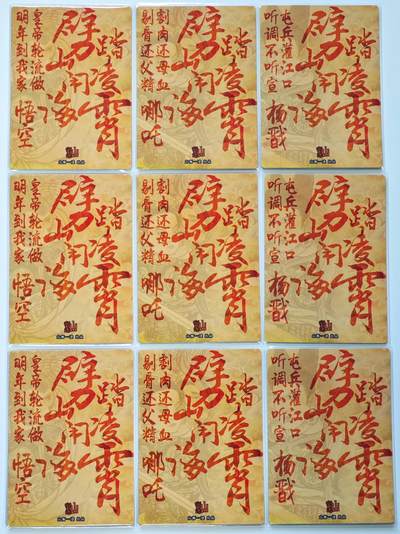 劈山闹海
踏凌霄
皇帝轮流做
明年到我家
悟空
劈山闹海
踏凌霄
割肉还母血
剔骨还父精
哪吒
劈山闹海
踏凌霄
屯兵灌江口
听调不听宣
杨戬
劈山闹海
踏凌霄
皇帝轮流做
明年到我家
悟空
劈山闹海
踏凌霄
割肉还母血
剔骨还父精
哪吒
劈山闹海
踏凌霄
屯兵灌江口
听调不听宣
杨戬
劈山闹海
踏凌霄
皇帝轮流做
明年到我家
悟空
劈山闹海
踏凌霄
割肉还母血
剔骨还父精
哪吒
劈山闹海
踏凌霄
屯兵灌江口
听调不听宣
杨戬